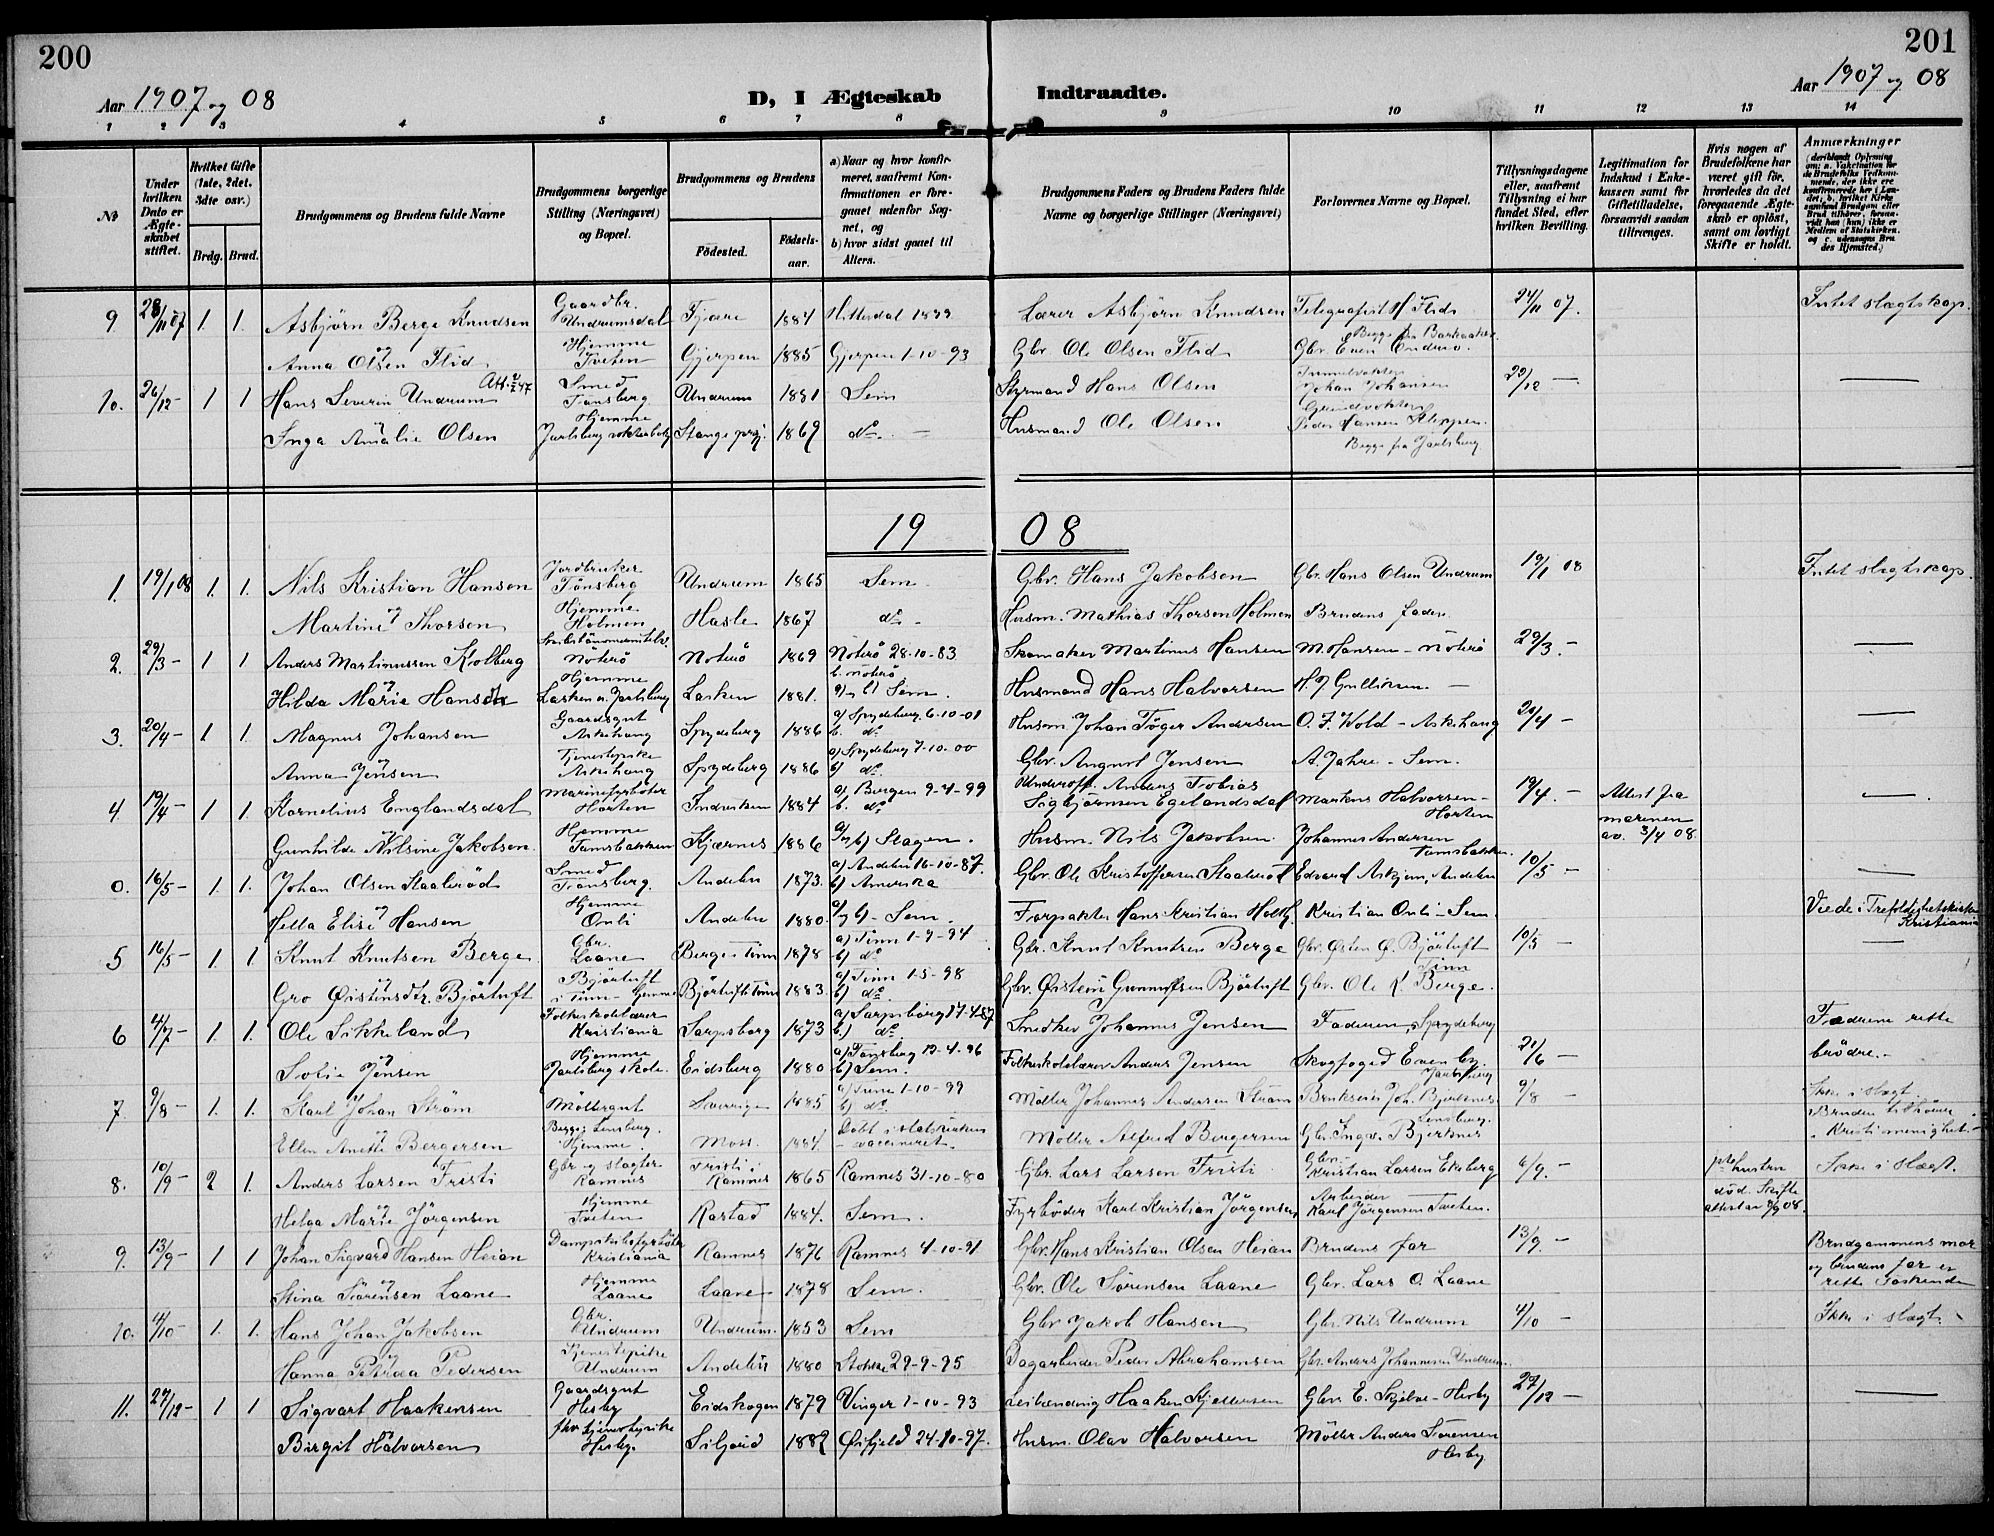 200
201
Aar 1907 og 08
D, I Ægteskab Indtraadte.
Aar 1907 og 08
1 2 3 4 5 6 7 8 9 10 11 12 13 14
No
Under hvilken Dato er Ægteskabet stiftet.
Hvilket Gifte (1ste, 2det, 3dte osv.)
Brdg. Brud.
Brudgommens og Brudens fulde Navne
Brudgommens borgerlige Stilling (Næringsvei) og Bopæl.
Brudgommens og Brudens
Fødested.
Fødselsaar.
a) Naar og hvor konfirmeret, saafremt Konfirmationen er foregaaet udenfor Sognet, og
b) hvor sidst gaaet til Alters.
Brudgommens Faders og Brudens Faders fulde Navne og borgerlige Stillinger (Næringsvei)
Forlovernes Navne og Bopæl.
Tillysningsdagene eller, saafremt Tillysning ei har fundet Sted, efter hvilken Bevilling.
Legitimation for Indskud i Enkekassen samt for Giftetilladelse, forsaavidt saadan tiltrænges.
Hvis nogen af Brudefolkene har været gift før, hvorledes da det foregaaende Ægteskab er opløst, samt om lovligt Skifte er holdt.
Anmærkninger
9. 28/11 07 1. 1. Asbjørn Berge Knudsen Gaardbr. Undrumsdal Fjære 1884 Hitterdal 1899 Lærer Asbjørn Knudsen Telegrafist H. Flid 24/11 07. Intet slægtskap.
og Anna Olsen Flid Hjemme Tveten Gjerpen 1885 Gjerpen 1-10-93 Gbr. Ole Olsen Flid Gbr. Even
10. 26/12 - 1 1 Hans Severin Undrum Smed Tønsberg Undrum 1881 Sem Styrmand Hans Olsen Johan Johansen 22/12 —
Inga Amalie Olsen Hjemme Jarlsberg Stange prj. 1869 do. Husmand Ole Olsen Peder Hansen Kleppen.
Begge fra Jarlsberg
19 08
1. 19/1 08 1. 1. Nils Kristian Hansen Jordbruker Tønsberg Undrum 1865 Sem Gbr. Hans Jakobsen Gbr. Hans Olsen Undrum 19/1 08 Intet slægtskap.
og Martine Thorsen Hjemme Holmen Hasle 1867 do. Husm. Mathias Thorsen Holmen Brudens fader
2. 29/3 - 1 1 Anders Martinussen Kolberg Nøterø Nøterø 1869 Nøterø 28-10-83 b. Nøterø Skomaker Martinus Hansen M. Hansen - Nøterø 29/3. - —
og Hilda Marie Hansdtr Hjemme Lasken v. Jarlsberg Lasken 1881. a) og b) Sem. Husmand Hans Halvorsen H. J. Gulliksen —
3. 20/4 - 1 1. Magnus Johansen Gaardsgut Askehaug Spydeberg 1886 a) Spydeberg 6-10-01 b. do Husm. Johan Tøger Andersen O. F. Wold - Askehaug 20/4 - —
og Anna Jensen Tjenestepike Askehaug Spydeberg 1886 a) Spydeberg 7-10-00 b) do. Gbr. August Jensen A. Jahre - Sem.
4 19/4 - 1 1. Kornelius Englandsdal Marinefyrbøter Horten Indviken 1884 a) Bergen 9-4-99 b. do Underoff. Anders Tobias Sigbjørnsen Egelandsdal Markus Halvorsen - Horten 19/4. - Attest fra marinen av. 3/4 08. —
Gunhilde Nilsine Jakobsen. Hjemme Tamsbakken Kjærnes 1886 a) og b) Slagen. Husm. Nils Jakobsen. Johannes Andersen Tamsbakken
0. 16/5 - 1. 1. Johan Olsen Staalerød Smed Tønsberg. Andebu 1873. a) Andebu 16-10-87. b) Amerika Gbr. Ole Kristoffersen Staalerød Edvard Askjem, Andebu 10/5 - —
og Hella Elise Hansen Hjemme Onli Andebu 1880. a) og b) - Sem. Forpakter Hans Kristian Kristian Onli - Sem. Viede i Trefoldighetskirken Kristiania
5 16/5 - 1. 1. Knut Knutsen Berge Gbr. Laane Berge i Tinn 1878 a) Tinn 1-7-94 b) do Gbr. Knut Knutsen Berge Gbr. Østen Ø. Bjørtuft Tinn 10/5 - —
og Gro Øistinsdtr. Bjørtuft Bjørtuft i Tinn - hjemme Bjørtuft i Tinn 1883. a) Tinn 1-5-98 b) do. Gbr. Øistein Gunnulfsen Bjørtuft Gbr. Ole K. Berge.
6 4/7 - 1 1 Ole Sikkeland Folkeskolelærer Kristiania Sarpsborg 1873 a) Sarpsborg 17-4-87 b) do. Smedker Johannes Jensen Faderen, Spydeberg Fædrene rette brødre. -
og Sofie Jensen Hjemme Jarlsberg skole. Eidsberg 1880 a) Tønsberg 12-4-96 b) Sem. Folkeskolelærer Anders Jensen Skogfoged Evenby. Jarlsberg 21/6 -
7. 9/8 - 1. 1. Karl Johan Strøm Møllergut Sverrige 1885 a) Tune 1-10-99 b) do. Møller Johannes Andersen Strøm Brukseier Joh. Bjerknes 9/8 - Ikke i slægt.
Ellen Anette Bergersen Begge Lensberg. Hjemme. Moss. 1884. Døbt i statskirken - vaccineret. Møller Alfred Bergersen Gbr. Ingv. Bjerknes Bruden tilhører Kristi menighet. -
8. 10/9 - 2 1. Anders Larsen Fristi Gbr. og slagter Ramnes Fristi i Ramnes 1865 Ramnes 31-10-80 Gbr. Lars Larsen Fristi Gbr. Kristian Larsen Ekeberg 6/9. - hustru død. Skifteattest av 2/9 08. Ikke i slægt.
og Helga Marie Jørgensen Hjemme Tveten Rastad 1884. Sem. Fyrbøder Karl Kristian Jørgensen Arbeider Karl Jørgensen Tveten.
9. 13/9 - 1 1 Johan Sigvard Hansen Heian Kristiania Ramnes 1876 Ramnes 4-10-91 Gbr. Hans Kristian Olsen Heian Brudens far 13/9 - Brudgommens mor og brudens far er rette søskende
og Stina Sørensen Laane Hjemme Laane Laane 1878 Sem. Gbr. Ole Sørensen Laane Gbr. Lars O. Laane
10. 4/10 - 1. 1. Hans Johan Jakobsen Gbr. Undrum Undrum. 1853 Sem Gbr. Jakob Hansen Gbr. Nils Undrum 4/10 - Ikke i slægt. -
og Hanna Petrea Pedersen Tjenestepike Undrum Andebu 1880 Stokke 29-9-95 Dagarbeider Peder Abrahamsen Gbr. Anders Johannesen Undrum.
11. 27/12 - 1 1 Sigvart Haakensen Gaardsgut Hesby Eidskogen 1879 Vinger 1-10-93 Leilending Haaken Kjellersen Gbr. E. Skjelve - Hesby 27/12 - —
Birgit Halvorsen fhv. tjenestepike Hesby. Siljord 1882 Øifjeld 24-10-97. Husm. Olav Halvorsen Møller Anders Sørensen Hesby